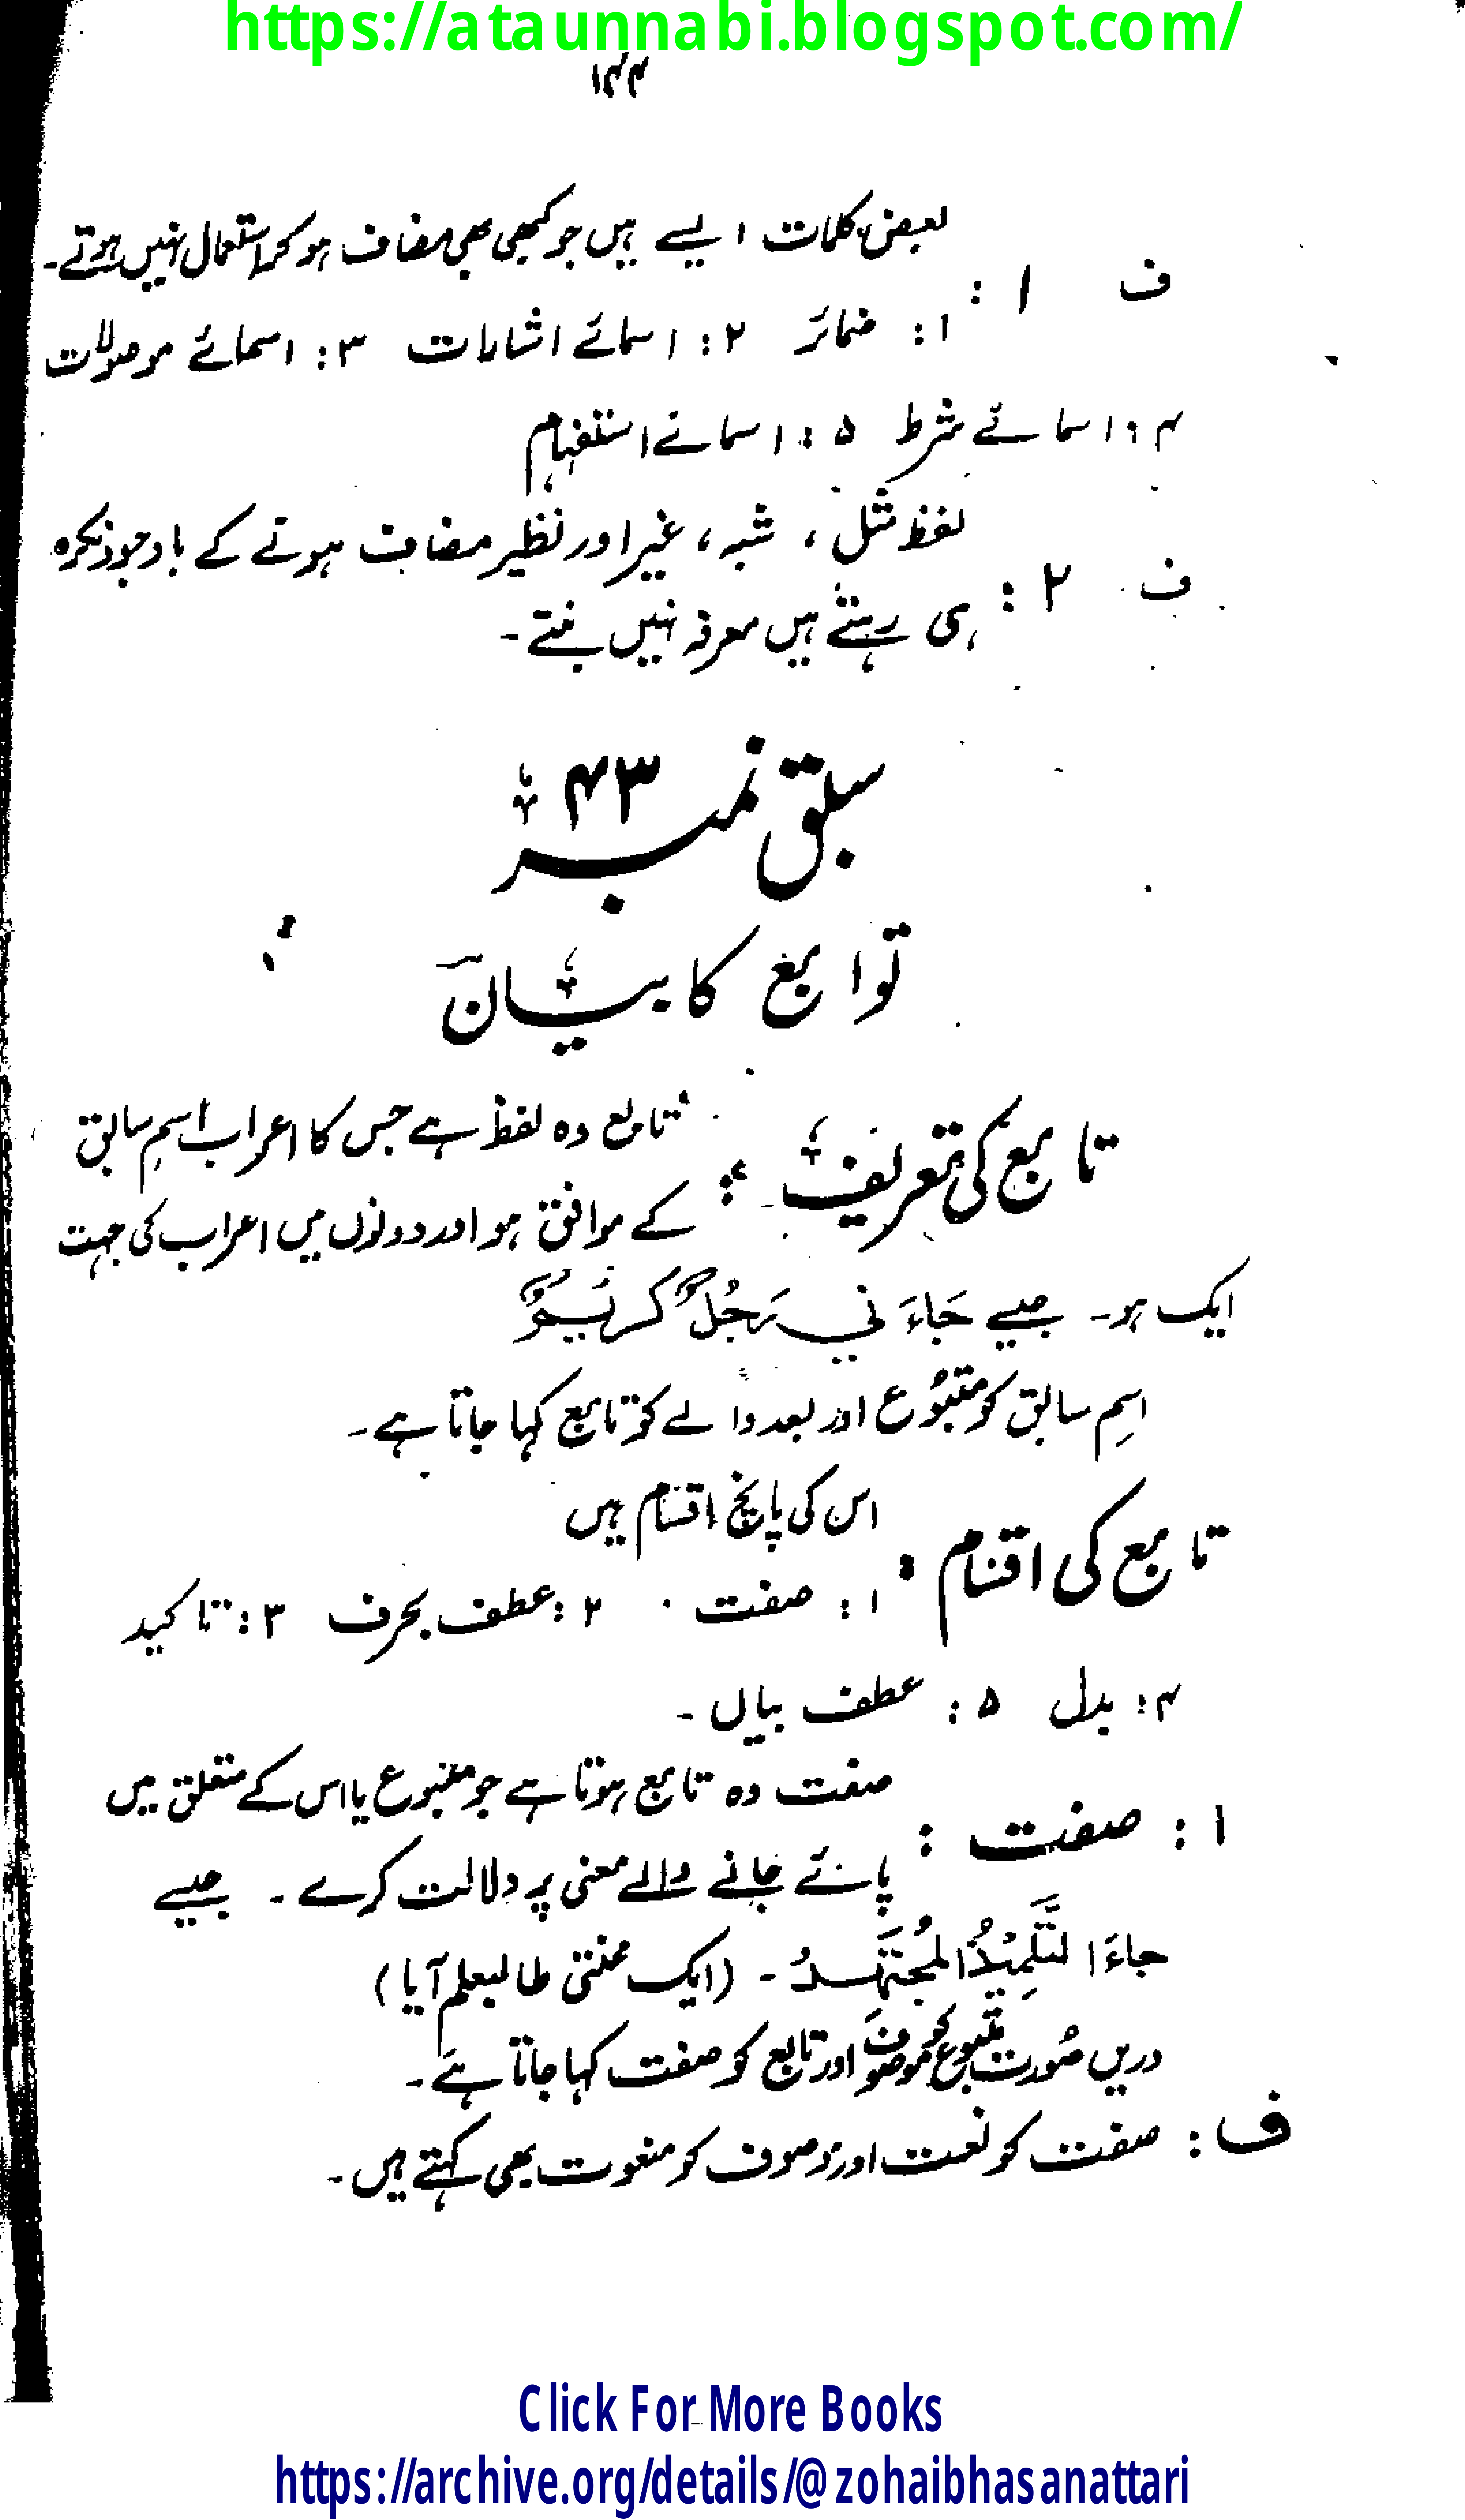 https://ataunnabi.blogspot.com/
۱۴۴
ف ۱ : بعض کلمات ایسے ہیں جو کبھی بھی مضاف ہو کر استعمال نہیں ہوتے۔
۱: ضمائر ۲: اسمائے اشارات ۳: اسمائے موصولات
۴: اسمائے شرط ۵: اسمائے استفہام
ف ۲ : لفظ مثل، شبہ، غیر اور نظیر مضاف ہونے کے باوجود نکرہ
ہی رہتے ہیں معرفہ نہیں بنتے۔
سبق نمبر ۴۳
توابع کا بیان
تابع کی تعریف : تابع وہ لفظ ہے جس کا اعراب اسمِ سابق
کے موافق ہو اور دونوں میں اعراب کی جہت
ایک ہو۔ جیسے جَاءَنِي رَجُلٌ كَرِيْمٌ
اسمِ سابق کو متبُوع اور بعد والے کو تابع کہا جاتا ہے۔
تابع کی اقسام : اس کی پانچ اقسام ہیں
۱: صفت ۲: عطف بحرف ۳: تاکید
۴: بدل ۵: عطف بیاں۔
۱: صفت : صفت وہ تابع ہوتا ہے جو متبوع یا اس کے متعلق میں
پائے جانے والے معنی پر دلالت کرے۔ جیسے
جاءَ التَّلِمِيْذُ الْمُجْتَهِدُ۔ (ایک محنتی طالبعلم آیا)
دریں صُورت متبوع کو موصوف اور تابع کو صفت کہا جاتا ہے۔
ف : صفت کو نعت اور موصوف کو منعوت بھی کہتے ہیں۔
Click For More Books
https://archive.org/details/@zohaibhasanattari